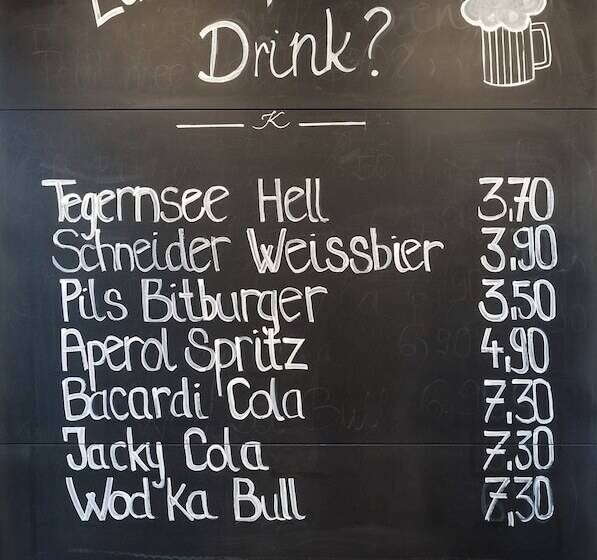 Drink?
K
Tegernsee Hell 3,70
Schneider Weissbier 3,90
Pils Bitburger 3,50
Aperol Spritz 4,90
Bacardi Cola 7,30
Jacky Cola 7,30
Wodka Bull 7,30